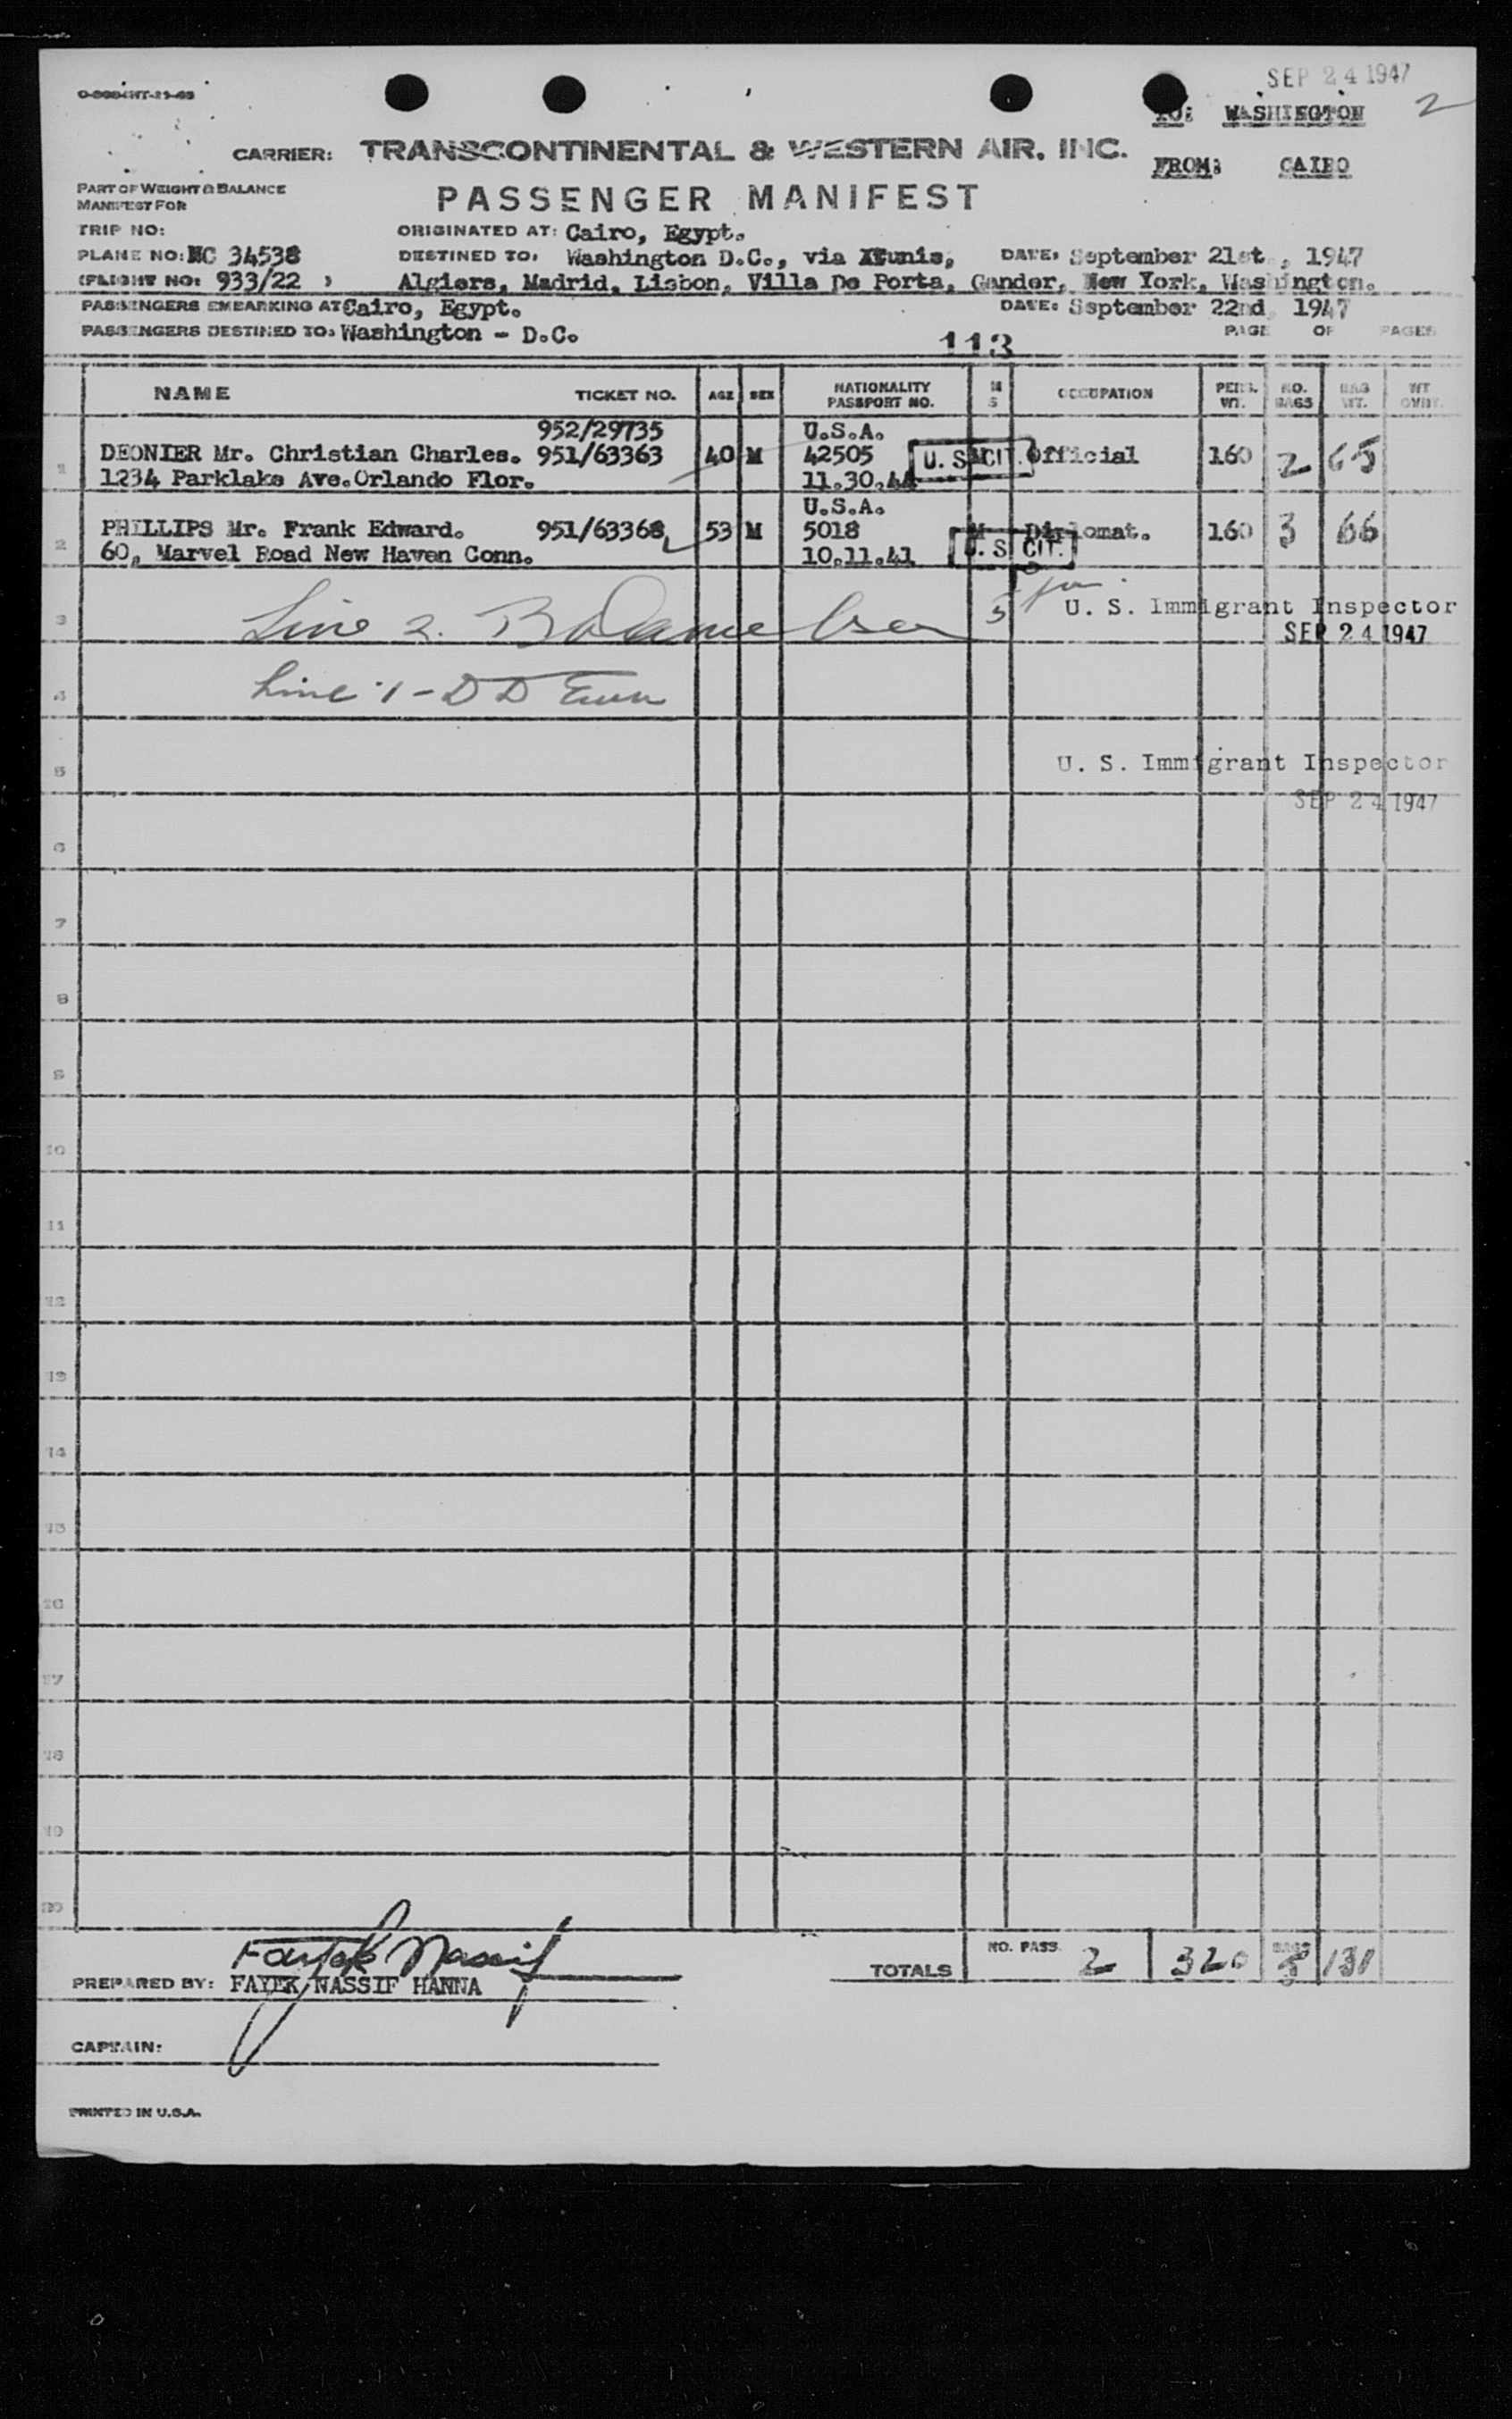 SEP 24 1947
TO: WASHINGTON 2
CARRIER: TRANSCONTINENTAL & WESTERN AIR, INC.
FROM: CAIRO
PART OF WEIGHT & BALANCE
MANIFEST FOR
PASSENGER MANIFEST
TRIP NO: ORIGINATED AT: Cairo, Egypt.
PLANE NO: NC 34538 DESTINED TO: Washington D.C., via Tunis, DATE: September 21st, 1947
(FLIGHT NO: 933/22 ) Algiers, Madrid, Lisbon, Villa De Porta, Gander, New York, Washington.
PASSENGERS EMBARKING AT Cairo, Egypt. DATE: September 22nd 1947
PASSENGERS DESTINED TO: Washington - D.C. PAGE OF PAGES
113
NAME TICKET NO. AGE SEX NATIONALITY PASSPORT NO. M S OCCUPATION PERS. WT. NO. BAGS BAG WT. WT
952/29735 U.S.A.
1 DEONIER Mr. Christian Charles. 951/63363 40 M 42505 U. S. CIT. Official 160 2 65
1234 Parklake Ave. Orlando Flor. 11.30.44
U.S.A.
2 PHILLIPS Mr. Frank Edward. 951/63368 53 M 5018 M Diplomat. 160 3 66
60, Marvel Road New Haven Conn. 10.11.41 U. S. CIT.
3 Line 2. U. S. Immigrant Inspector
SEP 24 1947
4 Line 1 - D D
5 U. S. Immigrant Inspector
SEP 24 1947
6
7
8
9
10
11
12
13
14
15
16
17
18
19
20
Fayek Nassif
TOTALS NO. PASS. 2 320 BAGS 5 131
PREPARED BY: FAYEK NASSIF HANNA
CAPTAIN:
PRINTED IN U.S.A.